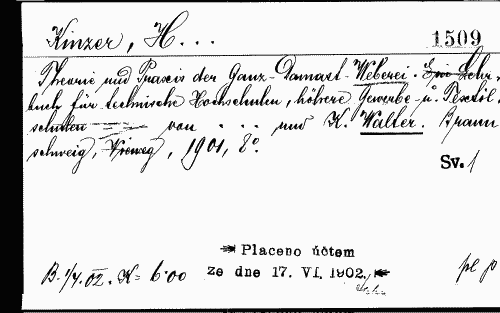 Kinzer, H...
1509
Theorie und Praxis der Ganz-Damast-Weberei. Ein Lehr-
buch für technische Hochschulen, höhere Gewerbe- u. Textil
schulen von . . . und K. Walter. Braun
schweig, Vieweg, 1901, 8°.
Sv. 1
Placeno účtem
ze dne 17. VI. 1902.
B. 1/4. 02. K= 6·00